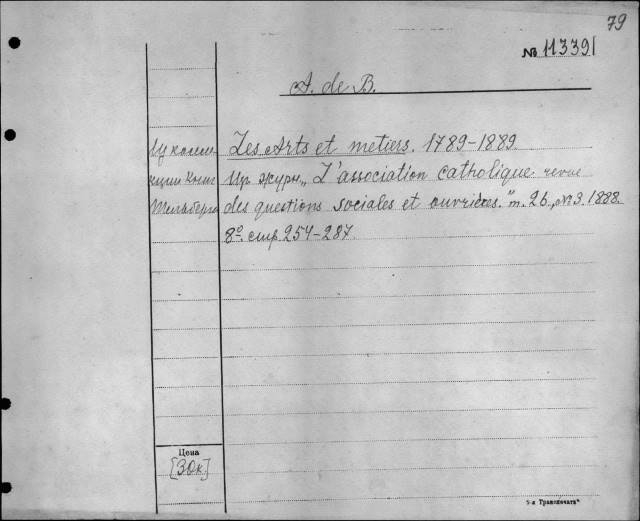 79
№ 113391
A. de B.
Les Arts et metiers. 1789-1889.
Изъ журн. „L'association catholique revue
des questions sociales et ouvrières." т. 26, №3. 1888.
8º. стр. 254-287.
Изъ коллек-
ции
Цена
[30к]
"Транспечать"